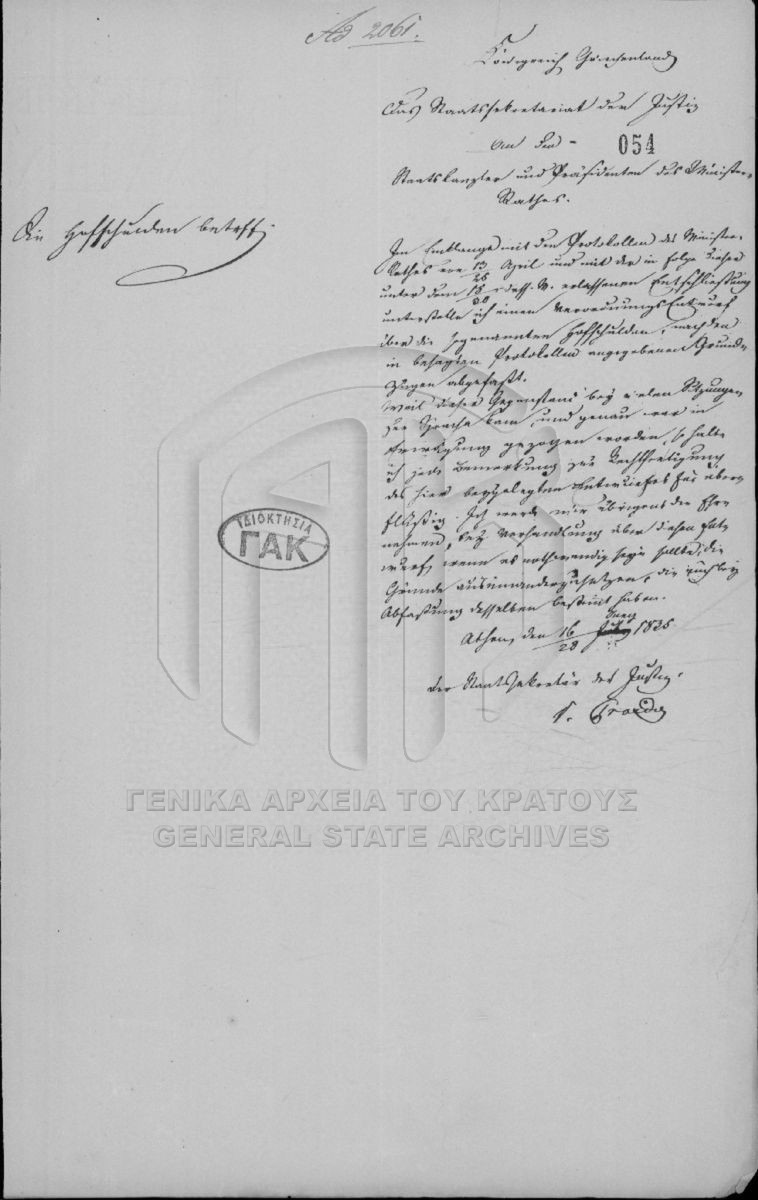 Ad 2061.
Königreich Griechenland
Das Staatssekretariat der Justiz
an den
054
Staatskanzler und Präsidenten des Minister-
Rathes.
Die Hofschulden betrff.
Im Einklange mit den Protokollen des Minister-
Rathes vom 13/25 April und mit der in Folge dieser
unter dem 18/30 dess. M. erlassenen Entschließung
unterstelle ich einen Verordnungs Entwurf
über die sogenannten Hofschulden, nach den
in besagten Protokollen angegebenen Grund-
zügen abgefaßt.
Weil dieser Gegenstand bey vielen Sitzungen
zur Sprache kam, und genau in
Erwägung gezogen worden, so halte
ich jede Bemerkung zur Rechtfertigung
des hier beygelegten Entwurfes für über-
flüßig. Ich werde mir übrigens die Ehre
nehmen, bey Verhandlung über diesen Ent-
wurf, wenn es nothwendig seyn sollte, die
Gründe auseinanderzusetzen, die mich bey
Abfaßung desselben bestimt haben.
Athen, den 16/28 1835
Der Staatssekretär der Justiz.
ΙΔΙΟΚΤΗΣΙΑ
ΓΑΚ
ΓΕΝΙΚΑ ΑΡΧΕΙΑ ΤΟΥ ΚΡΑΤΟΥΣ
GENERAL STATE ARCHIVES